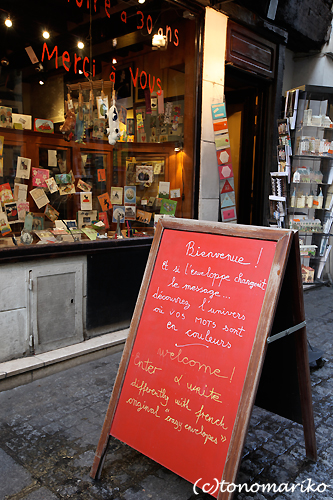 à 30 ans
Merci à Vous
Bienvenue !
Et si l'enveloppe changeait
le message...
découvrez l'univers
où vos mots sont
en couleurs
welcome !
Enter & write
differently with french
original "crazy envelopes"
(c)tonomariko